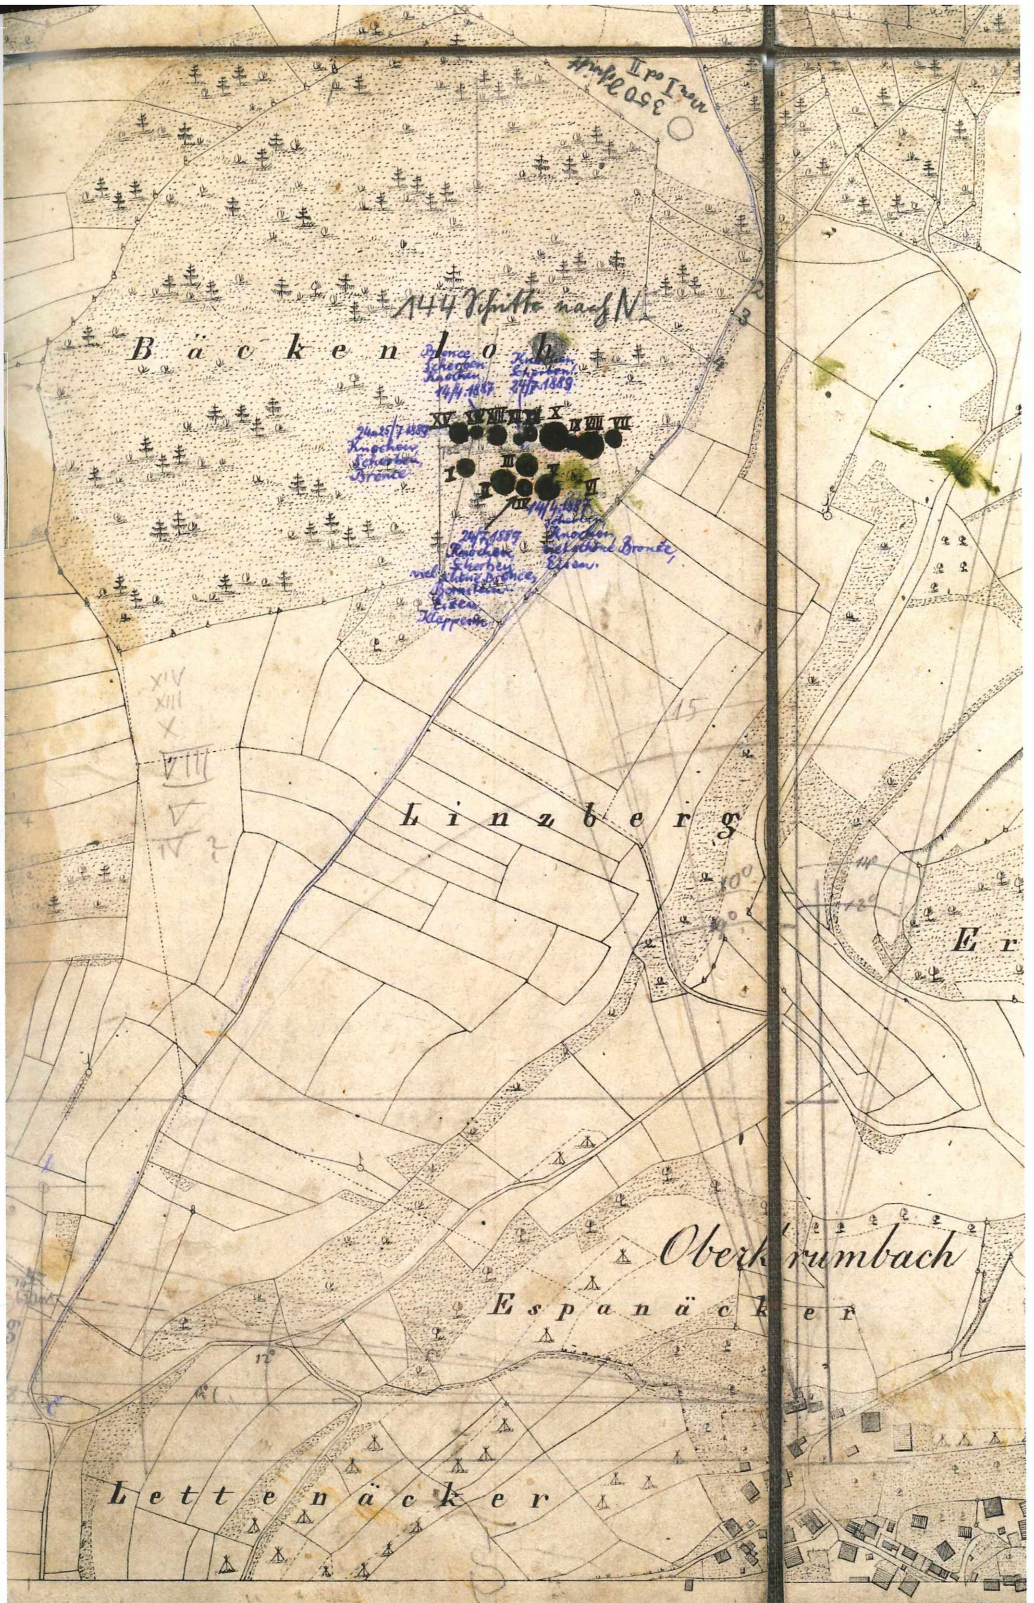 350 Schritt
von I od II
144 Schritte nach N.
2
3
4
Bäckenloh
Bronce
Scherben
Knochen
14/4.1887
Knochen
Scherben
24/7.1889
XV XIV XIII XII XI X IX VIII VII
24u25/7 1889
Knochen
Scherben,
Bronce
I II III IV V VI
14/4.1887
Scherben
Knochen
viel schöne Bronce,
Eisen.
24/7.1889
Knochen
Scherben
viel schöne Bronce,
Bernstein
Eisen
Klappern
XIV
XIII
X
VIII
V
IV ?
15
Linzberg
10°
14°
12°
Er
Oberkrumbach
Espanäcker
12°
Lettenäcker